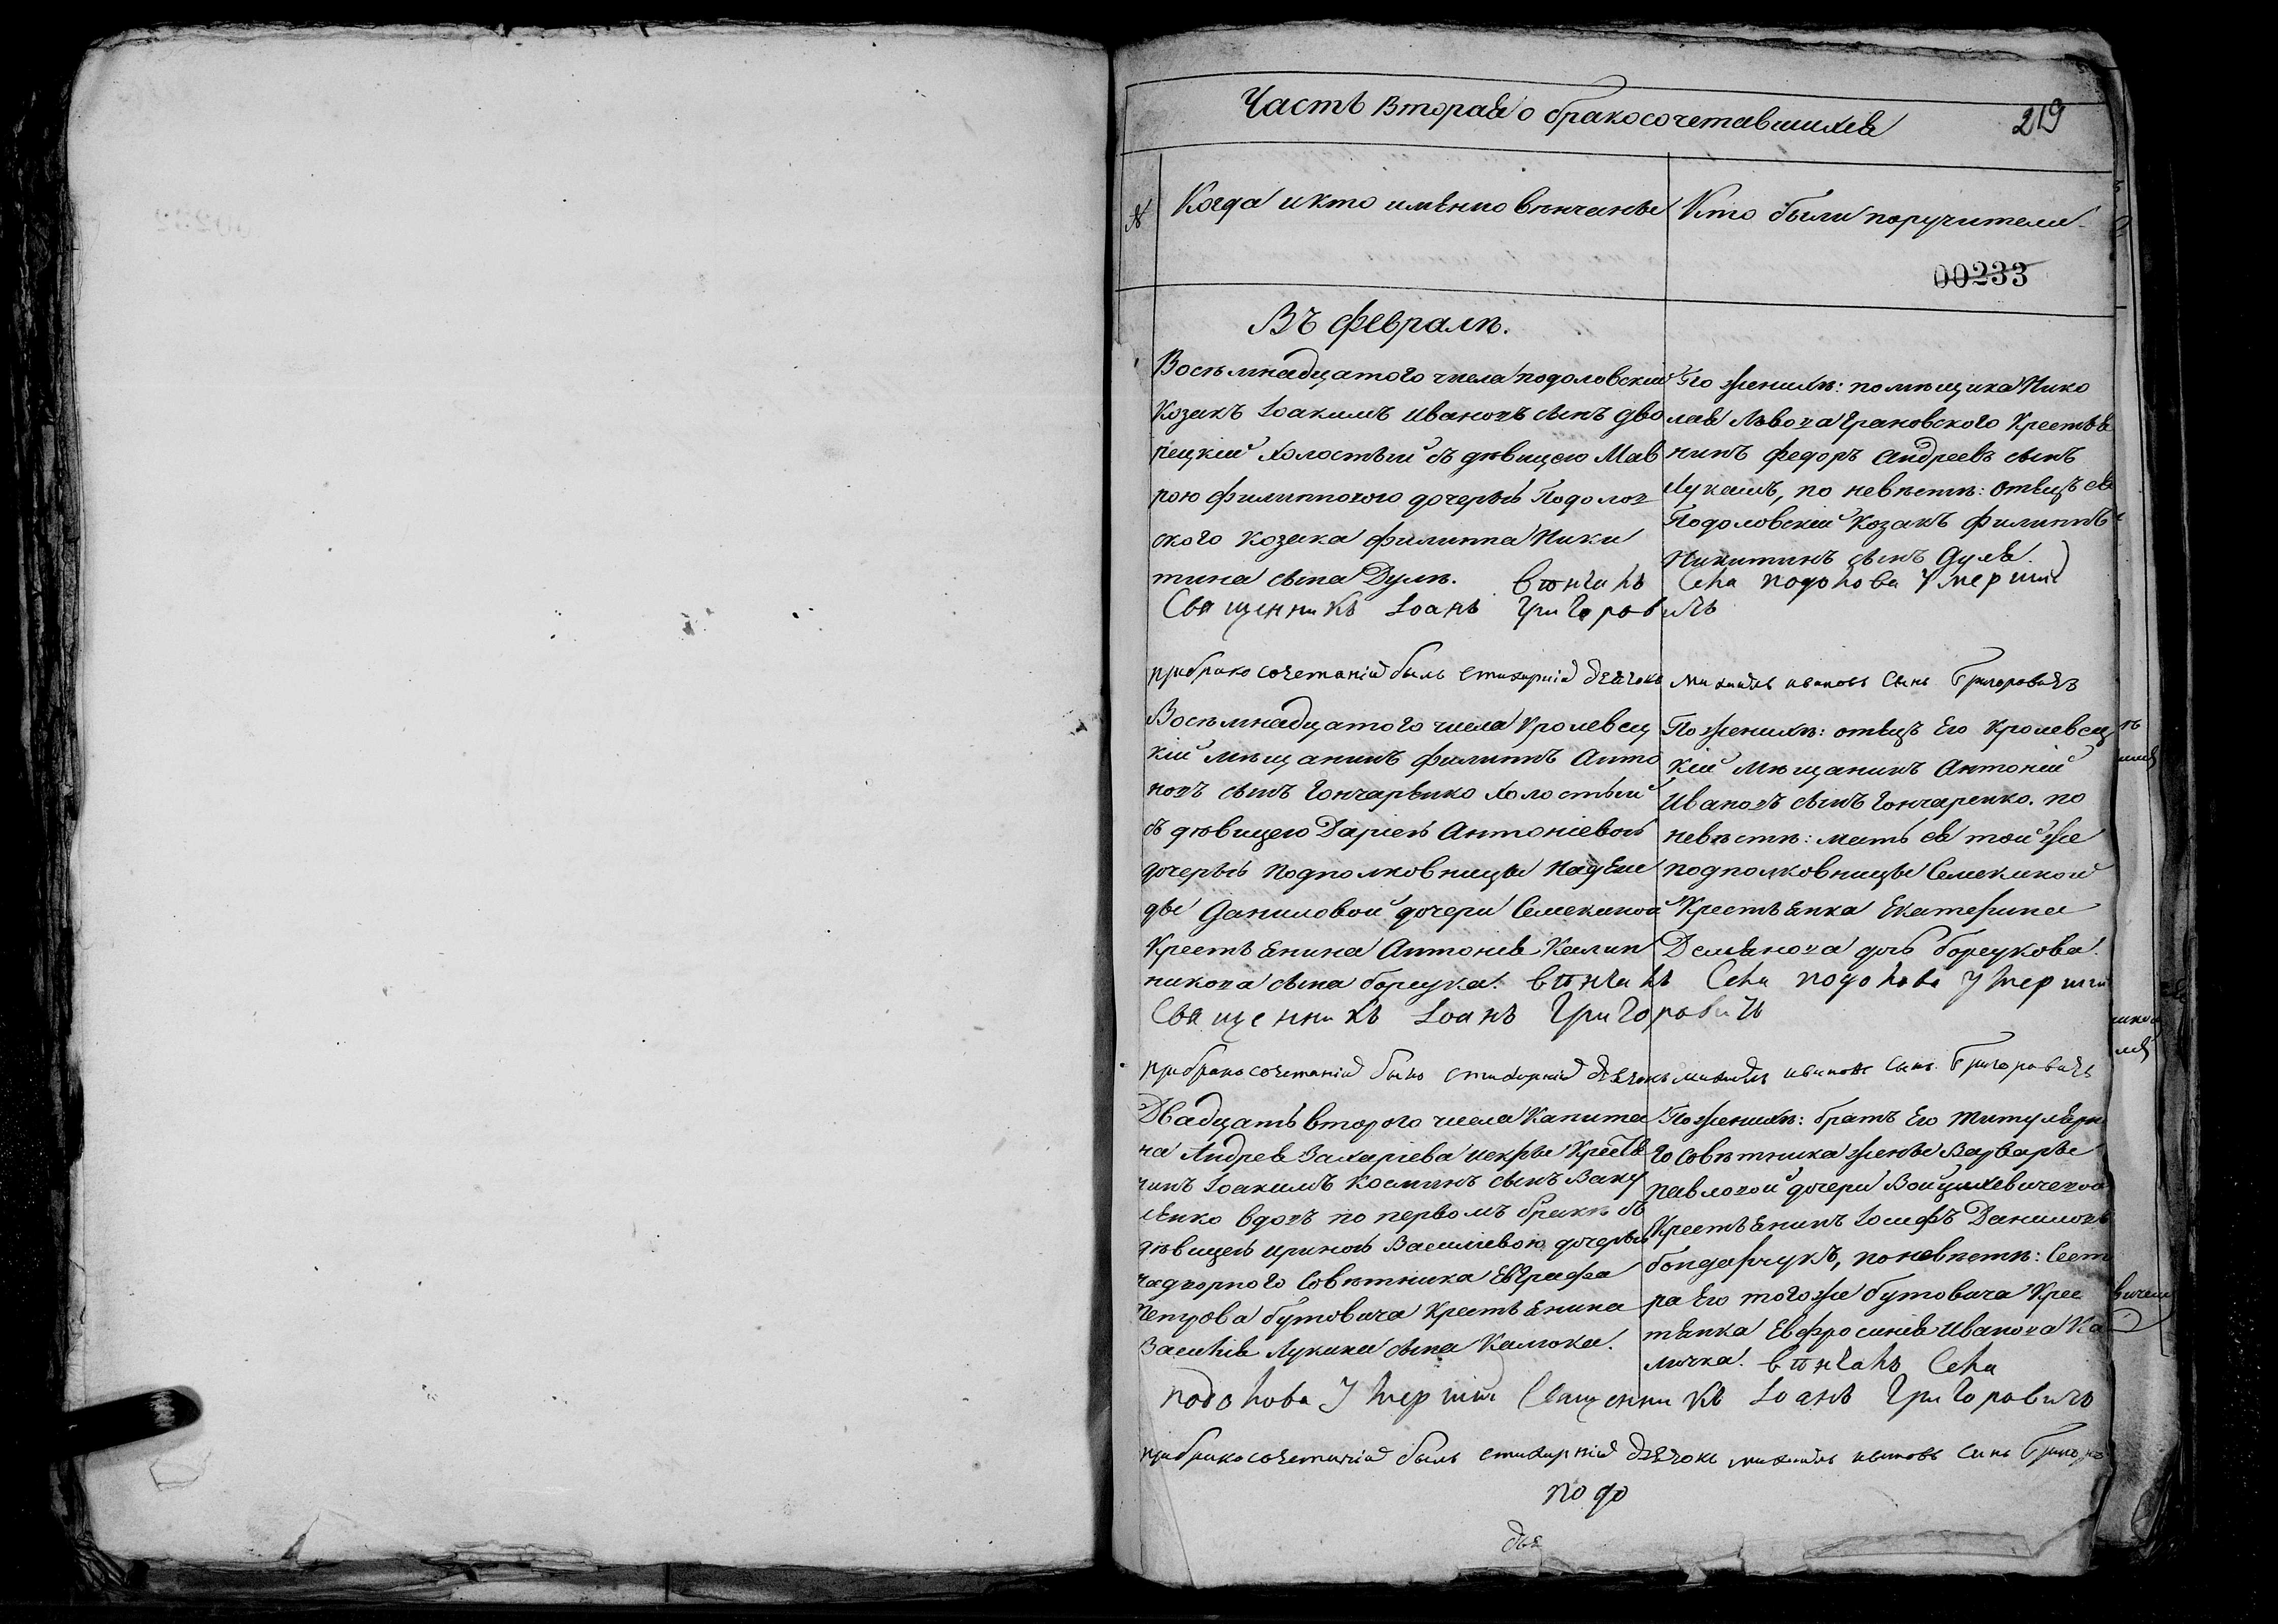 Часть вторая о бракосочетавшихся
219
№
Когда и кто имянно венчаны
Кто были поручители
00233
Въ февралѣ.
1
Восѣмнадцатого числа подоловский
Козакъ Іоакимъ Ивановъ сынъ дво
рецкий холостый съ дѣвицею Мав
рою Филиповою дочерью Подолов
ского козака Филиппа Ники
тина сына Дули. вѣнчалъ
Священникъ Іоанъ Григоровичъ
По женихѣ: помѣщика Нико
лая Львова Грановского Крестья
нинъ Федоръ Андреевъ сынъ
Лукашъ, по невѣстѣ: отецъ ея
Подоловский Козакъ Филиппъ
Никитинъ сынъ Дуля.
Села подолова Умерший
при бракосочетаній былъ стихарній дячокъ михаилъ ивановъ сынъ Григоровичъ
Восѣмнадцатого числа Кролевец
кий мѣщанинъ Филиппъ Анто
новъ сынъ Гончаренко холостый
съ дѣвицею Дарiею Антонiевою
дочерью подполковницы Надеж
ды Даниловой дочери Семекиной
Крестьянина Антонiя Калин
никова сына Борцука. вѣнчалъ
Священникъ Іоанъ Григоровичъ
По женихѣ: отецъ его Кролевец
кий Мѣщанинъ Антоний
Ивановъ сынъ Гончаренко. по
невѣстѣ: мать ея той же
подполковницы Семекиной
Крестьянка Екатерина
Демьянова дочь Борцукова.
Села подолова Умерший
при бракосочетаній былъ стихарній дячокъ михаилъ ивановъ сынъ Григоровичъ
Двадцать второго числа Капита
на Андрея Захарiева Искры Крестья
нинъ Іоакимъ Косминъ сынъ Заку
ленко вдовъ по первомъ бракѣ съ
дѣвицею Ириною Василiевою дочерью
надворного Совѣтника Евграфа
Петрова Бутовича Крестьянина
Василiя Лукина сына Калюка.
По женихѣ: братъ его титулярно
го совѣтника жены Варвары
Павловой дочери Войцеховичевой
Крестьянинъ Іосифъ Даниловъ
Бондарчукъ, по невѣстѣ: Сест
ра его того же Бутовича Крес
тьянка Евфросиния Иванова Ка
лючка. вѣнчалъ Села
подолова Умерший Священникъ Іоанъ Григоровичъ
при бракосочетаній былъ стихарній дячокъ михаилъ ивановъ сынъ Григоро
подо
дья